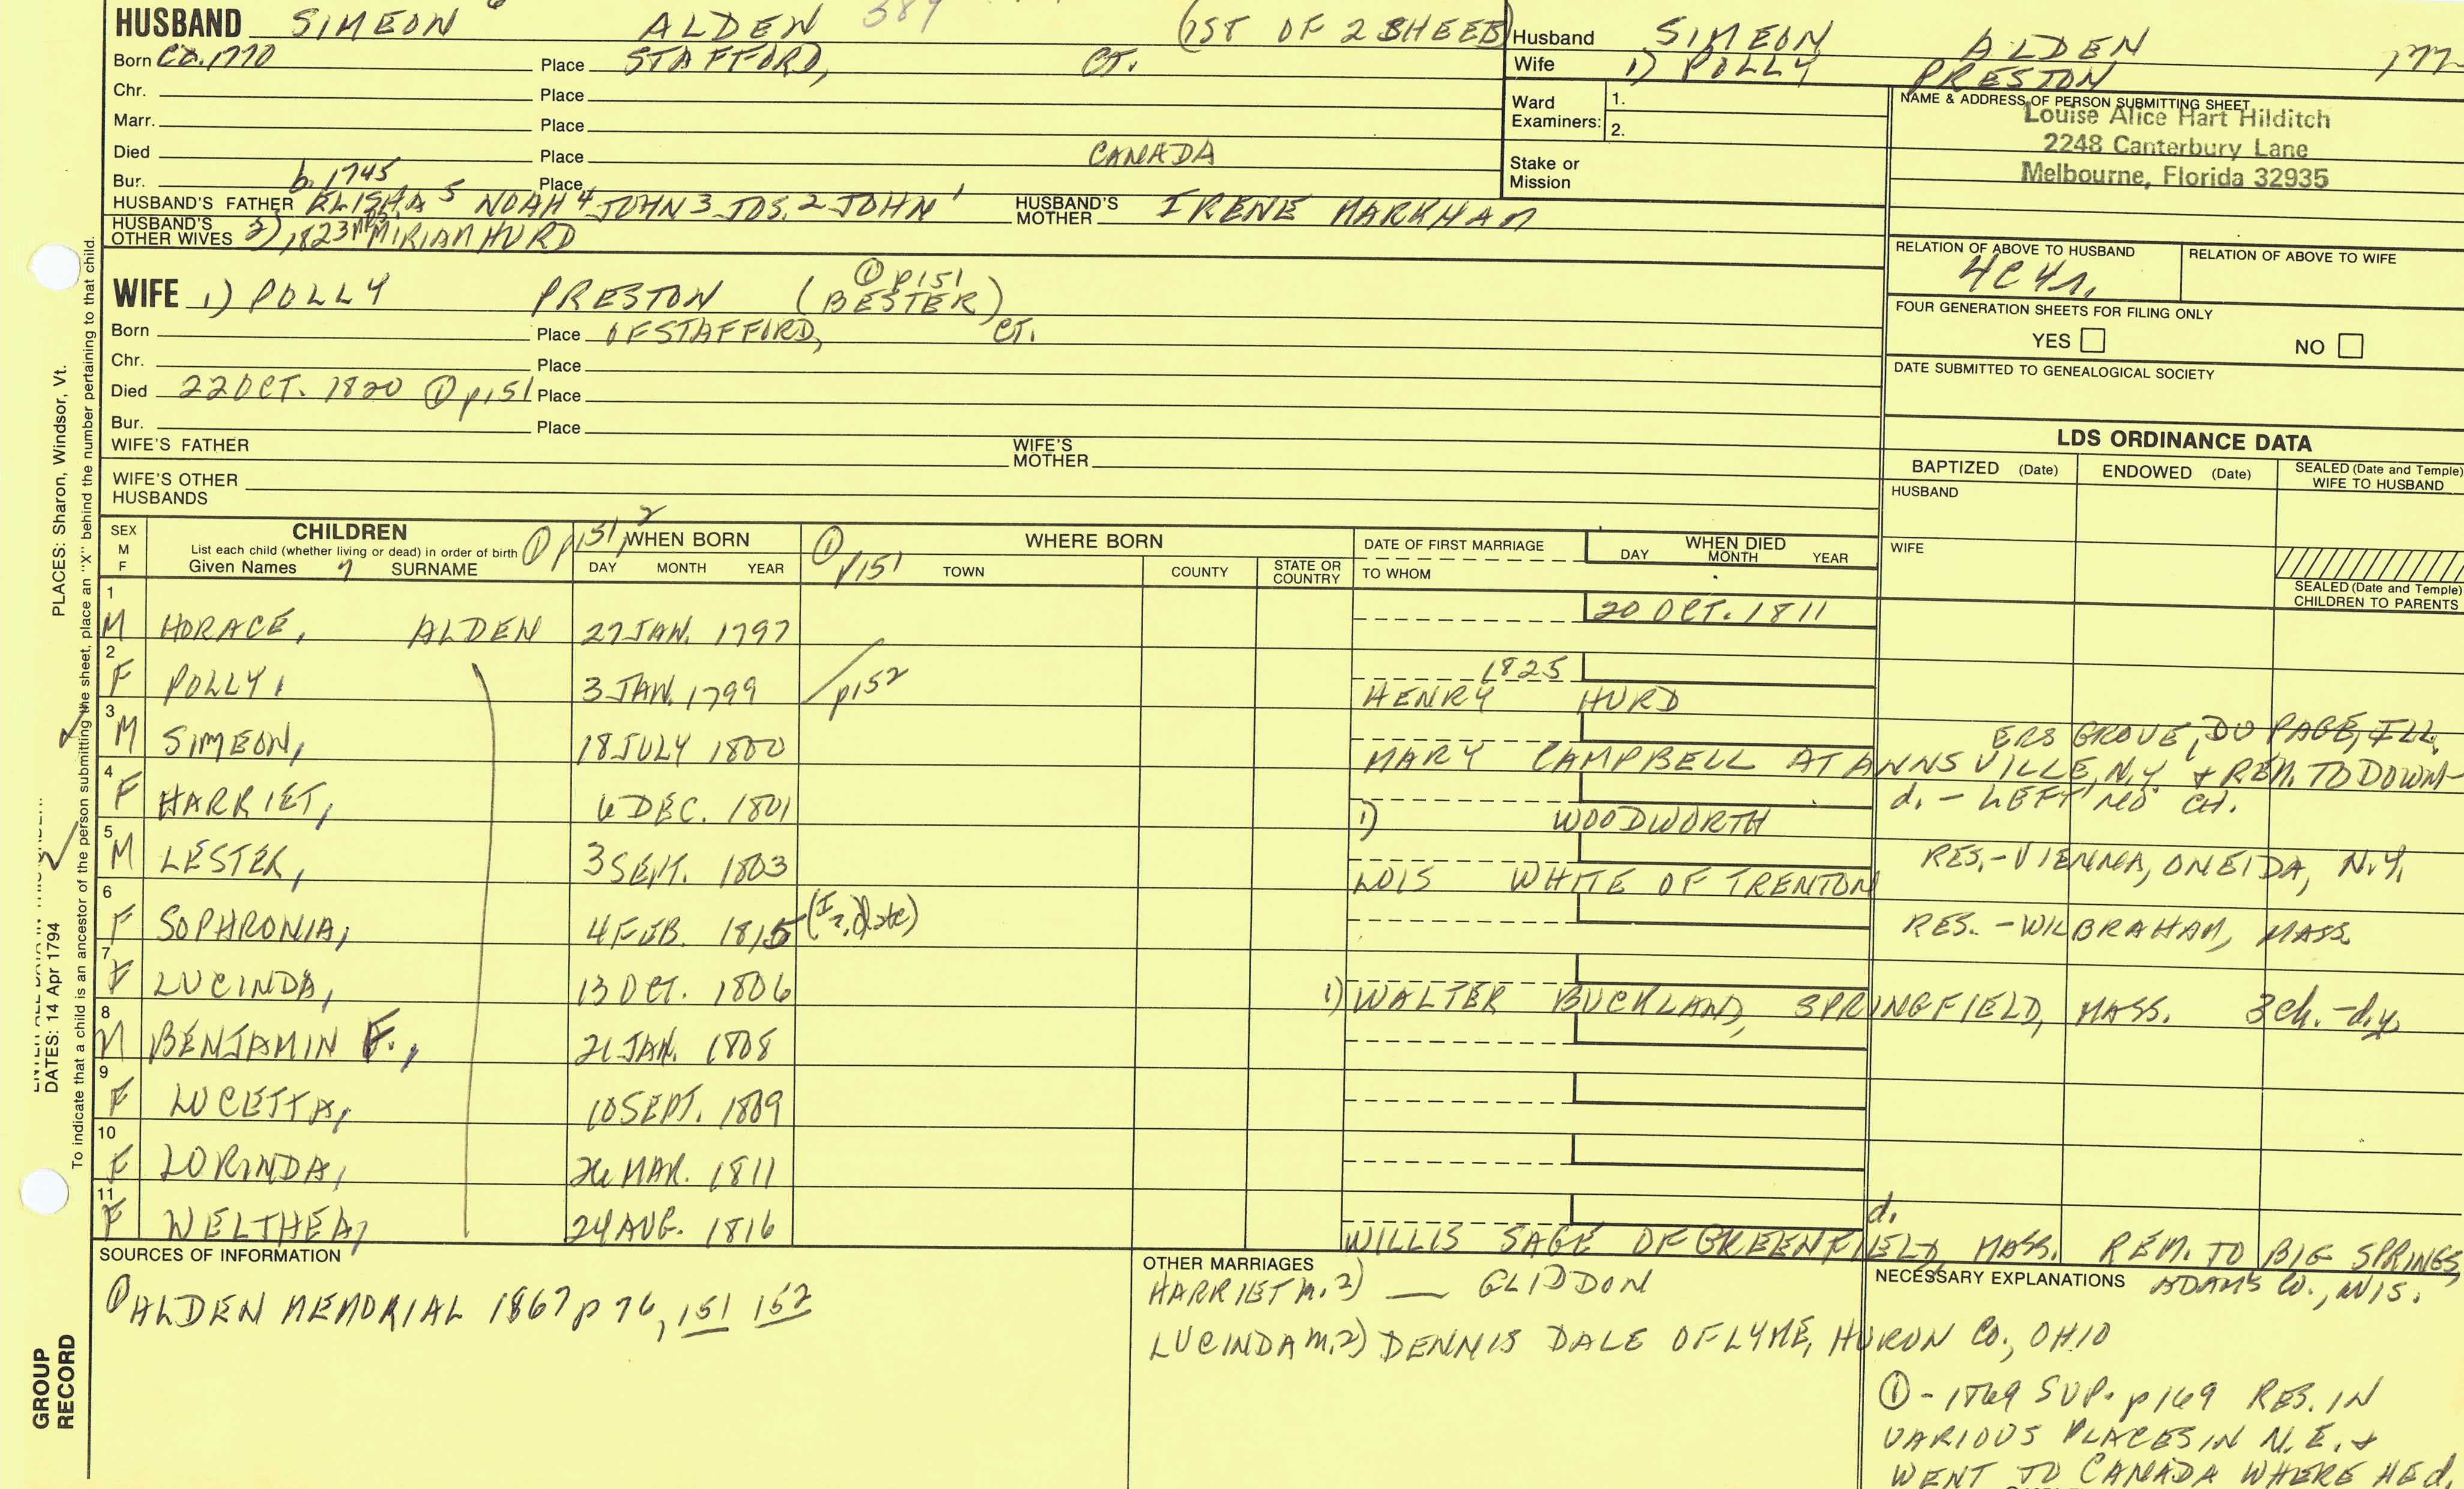 HUSBAND SIMEON 6 ALDEN 389 (1ST OF 2 SHEETS)
Born CA. 1770 Place STAFFORD, CT.
Chr. Place
Marr. Place
Died Place CANADA
Bur. Place
b. 1745
HUSBAND'S FATHER ELISHA 5 NOAH 4 JOHN 3 JOS. 2 JOHN 1 HUSBAND'S MOTHER IRENE MARKHAM
HUSBAND'S OTHER WIVES 2) 1823 MRS MIRIAM HURD
Husband SIMEON ALDEN 177
Wife 1) POLLY PRESTON
Ward Examiners: 1.
2.
Stake or Mission
NAME & ADDRESS OF PERSON SUBMITTING SHEET
Louise Alice Hart Hilditch
2248 Canterbury Lane
Melbourne, Florida 32935
RELATION OF ABOVE TO HUSBAND RELATION OF ABOVE TO WIFE
4C4r.
FOUR GENERATION SHEETS FOR FILING ONLY
YES NO
DATE SUBMITTED TO GENEALOGICAL SOCIETY
① p151
WIFE 1) POLLY PRESTON (BESTER)
Born Place OF STAFFORD, CT.
Chr. Place
Died 22 OCT. 1820 ① p151 Place
Bur. Place
WIFE'S FATHER WIFE'S MOTHER
WIFE'S OTHER HUSBANDS
LDS ORDINANCE DATA
BAPTIZED (Date) ENDOWED (Date) SEALED (Date and Temple) WIFE TO HUSBAND
HUSBAND
WIFE
SEALED (Date and Temple) CHILDREN TO PARENTS
SEX M F
CHILDREN ① p151, 2
List each child (whether living or dead) in order of birth
Given Names 7 SURNAME
WHEN BORN
DAY MONTH YEAR
WHERE BORN
① p151 TOWN COUNTY STATE OR COUNTRY
DATE OF FIRST MARRIAGE
TO WHOM
WHEN DIED
DAY MONTH YEAR
1 M HORACE, ALDEN 27 JAN. 1797 20 OCT. 1811
2 F POLLY, 3 JAN. 1799 p152 1825 HENRY HURD
3 M SIMEON, 18 JULY 1800 MARY CAMPBELL AT ANNSVILLE, N.Y. & REM. TO DOWN-
ERS GROVE, DU PAGE, ILL.
4 F HARRIET, 6 DEC. 1801 1) WOODWORTH d. - LEFT NO CH.
5 M LESTER, 3 SEPT. 1803 LOIS WHITE OF TRENTON RES.-VIENNA, ONEIDA, N.Y.
6 F SOPHRONIA, 4 FEB. 1815 RES. -WILBRAHAM, MASS.
7 F LUCINDA, 13 OCT. 1806 1) WALTER BUCKLAND, SPRINGFIELD, MASS. 3 ch. -d.y.
8 M BENJAMIN F., 21 JAN. 1808
9 F LUCETTA, 10 SEPT. 1809
10 F LORINDA, 26 MAR. 1811
11 F WELTHEA, 24 AUG. 1816 d.
WILLIS SAGE OF GREENFIELD, MASS. REM. TO BIG SPRINGS,
ADAMS CO., WIS.
SOURCES OF INFORMATION
① ALDEN MEMORIAL 1867 p 76, 151 152
OTHER MARRIAGES
HARRIET m. 2) — GLIDDON
LUCINDA m. 2) DENNIS DALE OF LYME, HURON CO., OHIO
NECESSARY EXPLANATIONS
① - 1869 SUP. p169 RES. IN
VARIOUS PLACES IN N.E. &
WENT TO CANADA WHERE HE d.
PLACES: Sharon, Windsor, Vt.
To indicate that a child is an ancestor of the person submitting the sheet, place an "X" behind the number pertaining to that child.
DATES: 14 Apr 1794
GROUP
RECORD